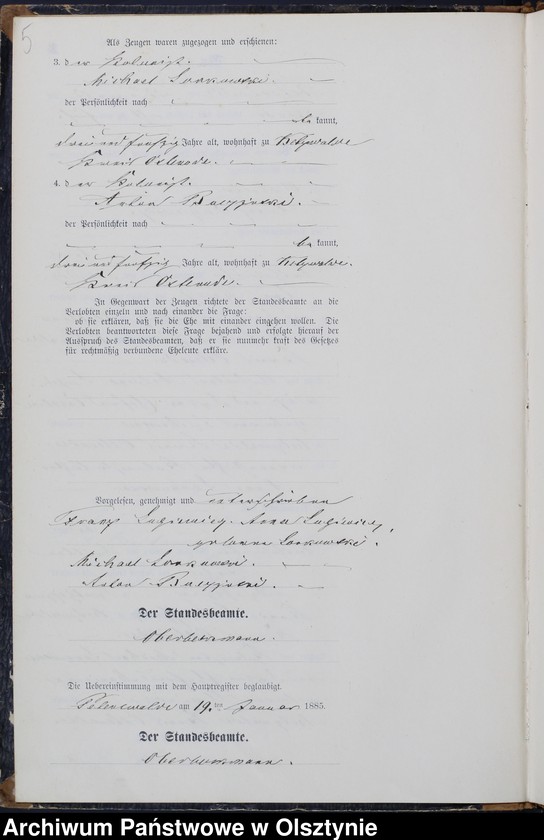 5
Als Zeugen waren zugezogen und erschienen:
3. der Kolonist
Michael Sorkowski.
der Persönlichkeit nach
be kannt,
drei und fünfzig Jahre alt, wohnhaft zu
Kreis Osterode.
4. der Kolonist.
Anton
der Persönlichkeit nach
be kannt,
drei und fünfzig Jahre alt, wohnhaft zu
Kreis Osterode.
In Gegenwart der Zeugen richtete der Standesbeamte an die
Verlobten einzeln und nach einander die Frage:
ob sie erklären, daß sie die Ehe mit einander eingehen wollen. Die
Verlobten beantworteten diese Frage bejahend und erfolgte hierauf der
Ausspruch des Standesbeamten, daß er sie nunmehr kraft des Gesetzes
für rechtmäßig verbundene Eheleute erkläre.
Vorgelesen, genehmigt und unterschrieben
Franz Anna
geborene Sorkowski.
Michael Sorkowski.
Anton
Der Standesbeamte.
Die Uebereinstimmung mit dem Hauptregister beglaubigt.
am 19. ten Januar 1885.
Der Standesbeamte.
Archiwum Państwowe w Olsztynie